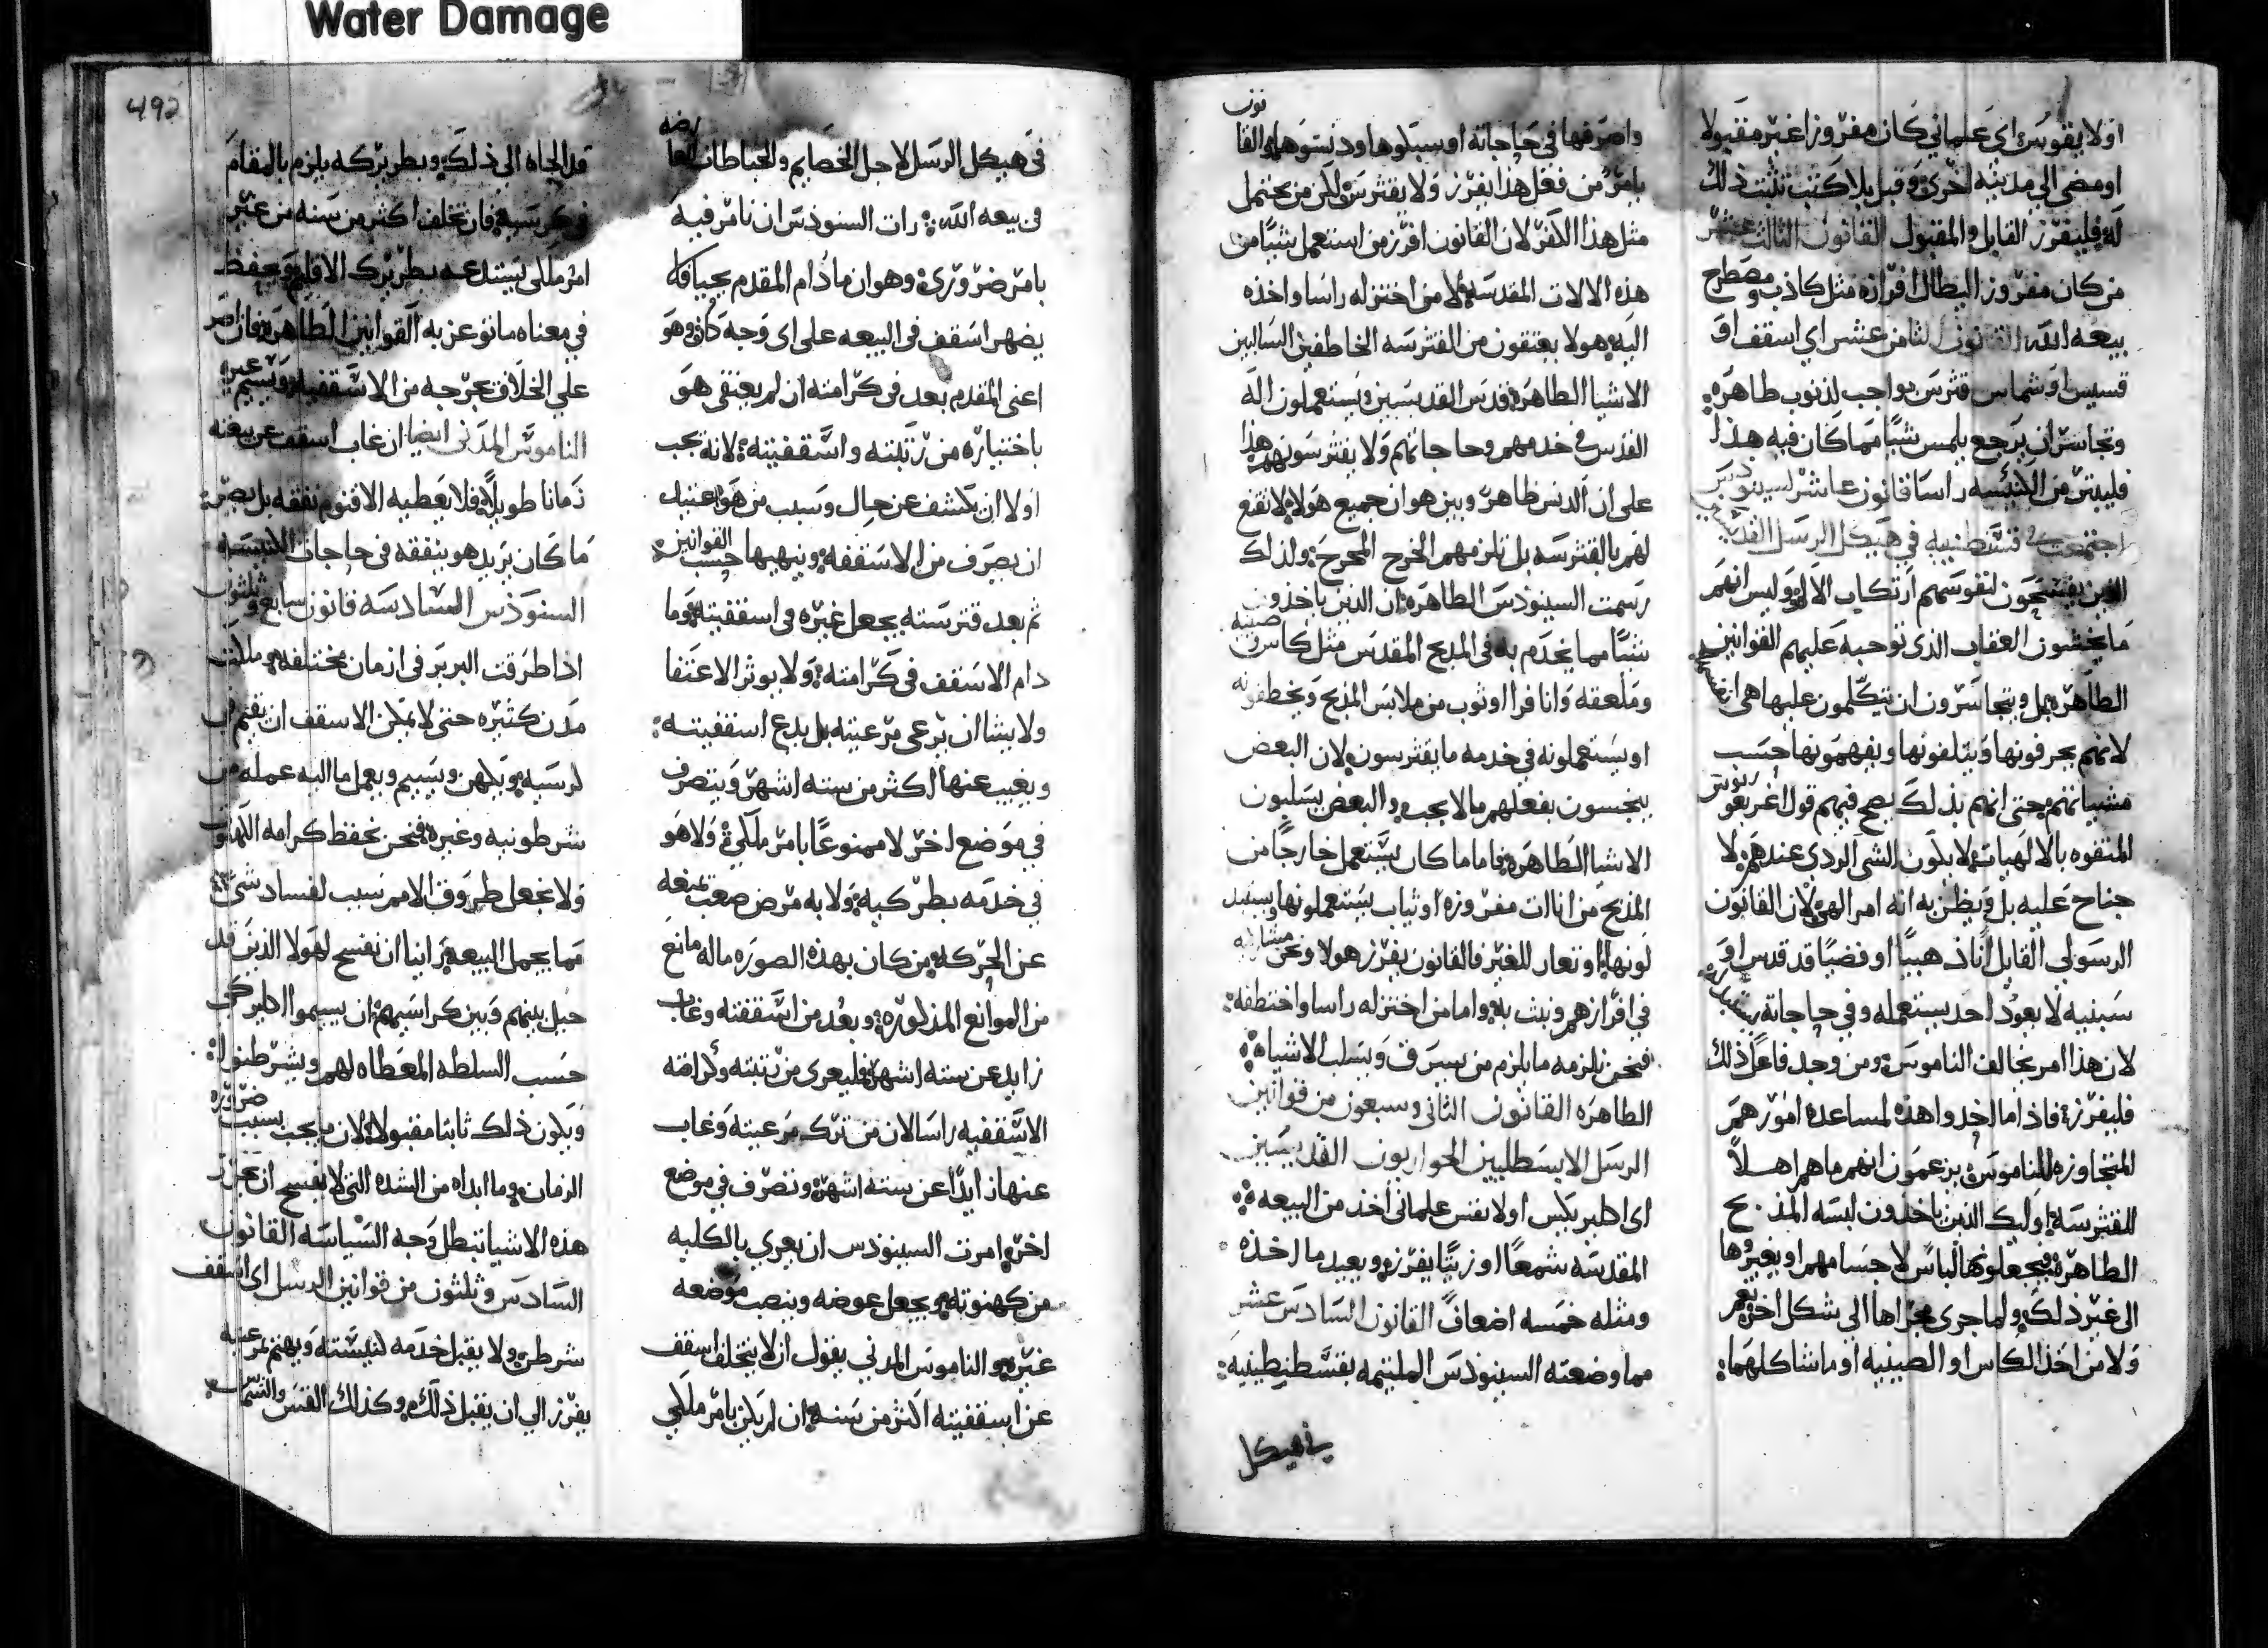 Water Damage
492
اولايقوس اي علماني كان مفروزا غير مقبولا
او مضى الي مدينه اخرى وقبل بلا كتب تثبت ذلك
له فليفرز القابل والمقبول القانون الثالث عشر
من كان مفروز البطال افرازه مثل كاذب ومصطرح
بيعه الله القانون الثامن عشر اي اسقف او
قسيس او شماس قترس بواجب لذنوب طاهره
وتجاسر ان يرجع يلمس شيًا مما كان فيه هذا
فليبتر من الكنيسه راسا قانون عاشر لسينودس
اجتمعت في قسطنطينيه في هيكل الرسل القديسين
الذين يفسحون لنفوسهم ارتكاب الالم وليس انهم
ما يخشون العقاب الذي توجبه عليهم القوانين
الطاهره بل ويتجاسرون ان يتكلمون عليها هي
لانهم يحرفونها ويتلفونها ويفهمونها حسب
مشياتهم حتى انهم بذلك يصح فيهم قول اغريغوريوس
المتفوه بالالهيات لا يكون الشي الردي عندهم لا
جناح عليه بل ويظن به انه امر الهي لان القانون
الرسولي القايل اناذهبيًا او فضيًا قد قدس او
سبنيه لا يعود احد يستعمله وفي حاجاته
لان هذا امر يخالف الناموس ومن وجد فاعل ذلك
فليفرز فاذا ما اخدوا هذه لمساعدة امورهم
المتجاوزه للناموس يزعمون انهم ما هم اهلاً
للقترسه اوليك الذين ياخذون لبسه المذبح
الطاهره فيجعلونها لباس لاجسامهم او يغيروها
الى غير ذلك ولما جرى مجراها الى شكل اخر نعم
ولا من اخذ الكاس او الصينيه او ما شاكلهما
نون
واصرفها في حاجاته او سبلوها ودنسوها القا
يامر من فعل هذا يفرز ولا يقترس لكن من يحتمل
مثل هذا الكفر لان القانون افرز من استعمل شيًا من
هذه الالات المقدسه لا من اختزله راسا واخذه
اليه هولا يعتقون من القترسه الخاطفين السالبين
الاشيا الطاهره قدس القديسين ويستعملون اله
القدس في خدمهم وحاجاتهم ولا يقترسونهم هذا
على ان الدنس ظاهر وبين هو ان جميع هولا لا تقنع
لهم بالقترسه بل تلزمهم الخرج المحرج ولذلك
رسمت السينودس الطاهره ان الذين ياخذون
شيًا مما يخدم به في المذبح المقدس مثل كاس او صينيه
وملعقه وانافرا او ثوب من ملابس المذبح ويخطفونه
او يستعملونه في خدمه ما يقترسون لان البعض
ينجسون بفعلهم ما لا يجب والبعض يسلبون
الاشيا الطاهره فاما ما كان يستعمل خارجًا من
المذبح من انات مفروزه او ثياب يستعملونها
لونها او تعار للغير فالقانون يفرز هولا ونحن
في افرازهم ونبث به واما من اختزله راسا واختطفه
فنحن نلزمه ما يلزم من يسرق ويسلب الاشياه
الطاهره القانون الثاني وسبعون من قوانين
الرسل الابسطليين الحواريون القديسين
اي اكليريكس اولا نفس علماني اخذ من البيعه
المقدسه شمعًا او زيتًا يفرز ويعيد ما اخذه
ومثله خمسه اضعاف القانون السادس عشر
مما وضعته السينودس الملتيمه بقسطنطينيه
في هيكل
في هيكل الرسل لاجل الخصايم والخباطات
في بيعه الله رات السنودس ان نامر فيه
بامر ضروري وهو ان ما دام المقدم بحيا فلا
يضهر اسقف في البيعه على اي وجه كان وهو
اعني المقدم بعد في كرامته ان لم يعتفي هو
باختياره من رتبته واسقفيته لانه يجب
اولا ان يكشف عن حال وسبب من هو عتيد
ان يصرف من الاسقفه وينهيها حسب القوانين
ثم بعد قترسته يجعل غيره في اسقفيته وما
دام الاسقف في كرامته ولا يوثر الاعتفا
ولا يشا ان يرعى مرعيته بل يدع اسقفيته
ويغيب عنها اكثر من سته اشهر ويتصرف
في موضع اخر لا ممنوعًا بامر ملكي ولا هو
في خدمه بطركيه ولا به مرض صعب يمنعه
عن الحركه من كان بهذه الصوره ماله مانع
من الموانع المذكوره وبعد من اسقفته وغاب
زايد عن سته اشهر فليعرى من رتبته وكرامه
الاسقفيه راسا لان من ترك مرعيته وغاب
عنها زايدًا عن سته اشهر وتصرف في موضع
اخر امرت السينودس ان يعري بالكليه
من كهنوته ويجعل عوضه وينصب موضعه
غيره والناموس المدني يقول ان لا يتخلف اسقف
عن اسقفيته اكثر من سنه ان لم يكن بامر ملكي
قد الجاه الى ذلك وبطريركه يلزم بالمقام
في كرسيه فان تخلف اكثر من سنه من غير
امر ملكي يستدعيه بطريرك الاقليم ويحفظ
في معناه ما توعز به القوانين الطاهره فان اصر
على الخلاف يخرجه من الاسقفيه ويسيم غيره
الناموس المدني ايضا ان غاب اسقف عن بيعته
زمانا طويلا فلا يعطيه الاقنوم نفقه بل يصرف
ما كان يريد هو ينفقه في حاجات الكنيسه
السنودس السادسه قانون سابع وثلثون
اذا طرقت البربر في ازمان مختلفه وملكت
مدن كثيره حتى لا يمكن الاسقف ان يقيم في
كرسيه ويكهن ويسيم ويعمل ما اليه عمله من
شرطونيه وغيره فنحن نحفظ كرامه الكهنوت
ولا نجعل طروق الامم سبب لفساد شي
مما يجمل البيعه راينا ان نفسح لهولا الذين قد
حيل بينهم وبين كراسيهم ان يسيموا اكليريكس
حسب السلطه المعطاه لهم ويشرطنوا
ويكون ذلك ثابتا مقبولا لان ما يجب بسبب ضروره
الزمان وما ابداه من الشده التي لا يفسح ان تحرز
هذه الاشيا تبطل وجه السياسه القانون
السادس وثلثون من قوانين الرسل اي اسقف
شرطن ولا يقبل خدمه كنيسته ويهتم لمرعيته
يفرز الي ان يقبل ذلك وكذلك القس والشماس